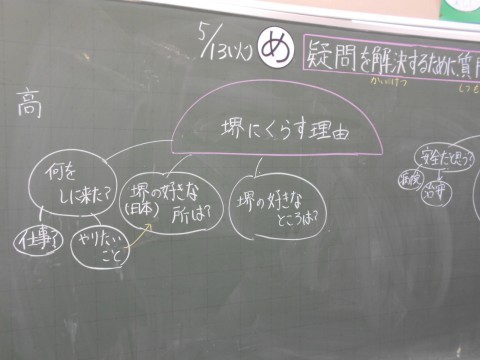 5/13(火)
め
疑問を解決するために、質
かいけつ
高
堺にくらす理由
何を
しに来た?
仕事?
やりたい
こと
堺の好きな
(日本) 所は?
堺の好きな
ところは?
安全だと思う?
治安